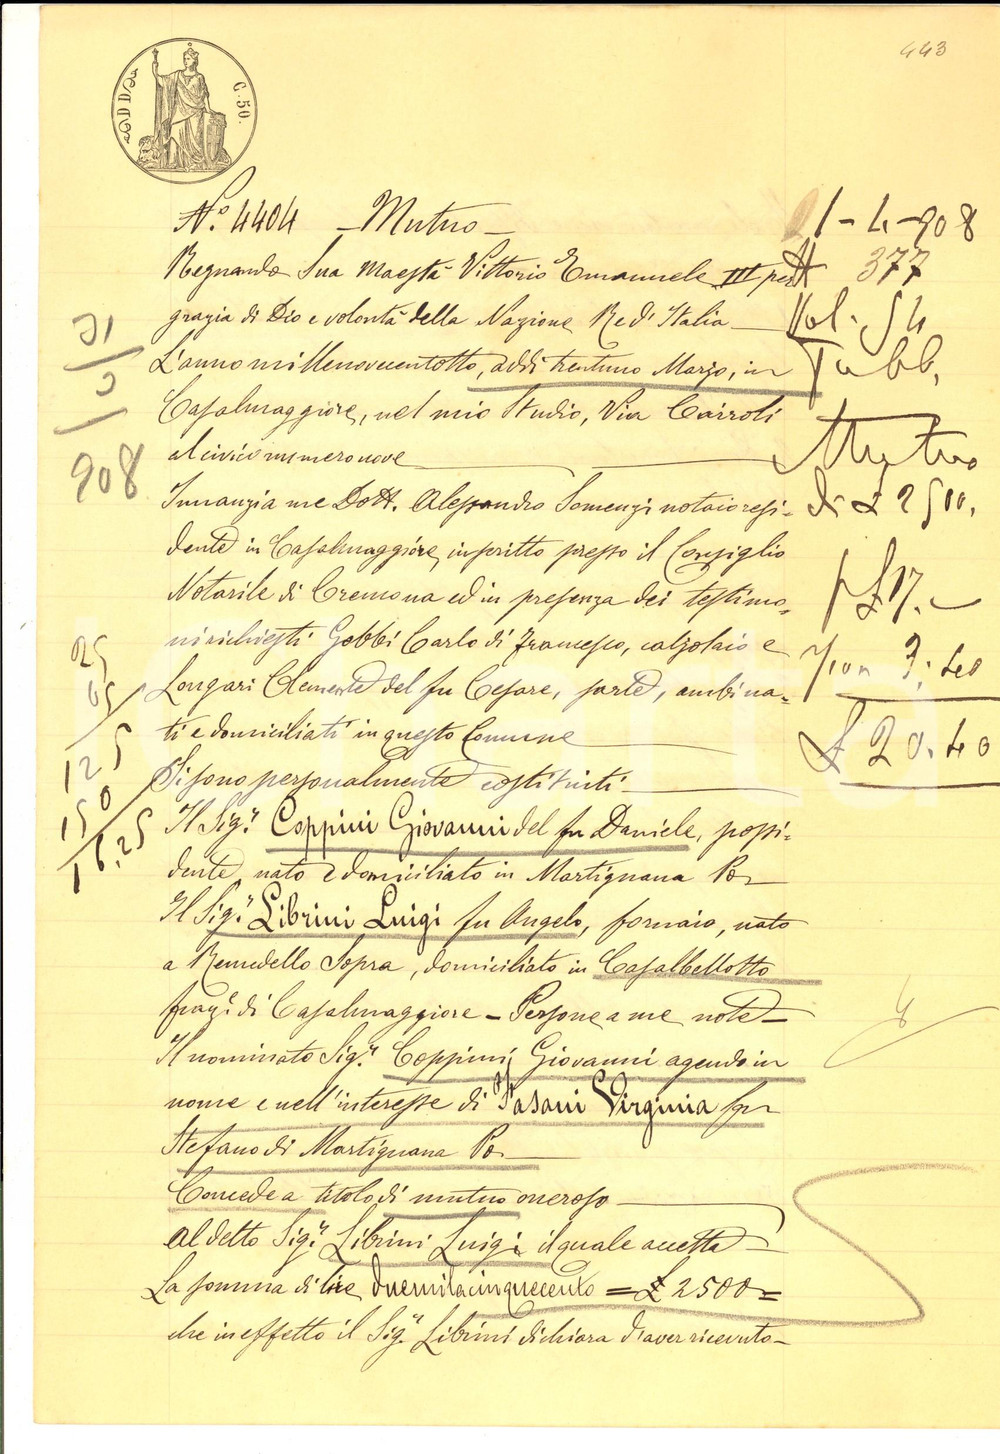 443
C. 50.
N.° 4404 - Mutuo -
Regnando Sua Maestà Vittorio Emanuele III per
grazia di Dio e volontà della Nazione Re d'Italia
L'anno millenovecentotto, addì trentuno Marzo, in
Casalmaggiore, nel mio Studio, Via Cairoli
al civico numero nove
Innanzi a me Dott. Alessandro Somenzi notaio resi-
dente in Casalmaggiore, inscritto presso il Consiglio
Notarile di Cremona ed in presenza dei testimo-
ni richiesti Gobbi Carlo di Francesco, calzolaio e
Longari Clemente del fu Cesare, sarte, ambi na-
ti e domiciliati in questo Comune
Si sono personalmente costituiti
Il Sig.r Coppini Giovanni del fu Daniele, possi-
dente, nato e domiciliato in Martignana Po
Il Sig.r Librini Luigi fu Angelo, fornaio, nato
a Remedello Sopra, domiciliato in Casalbellotto
fraz.e di Casalmaggiore - Persone a me note -
Il nominato Sig.r Coppini Giovanni agendo in
nome e nell'interesse di Pasani Virginia fu
Stefano di Martignana Po
Concede a titolo di mutuo oneroso
al detto Sig.r Librini Luigi il quale accetta
La somma di lire duemilacinquecento = £ 2500 =
che in effetto il Sig.r Librini dichiara d'aver ricevuto -
1-4-908
N 377
Vol. 54
Pubb.
Mutuo
di £ 2500.
£ 17. -
3.40
£ 20.40
31
3
908
25
05
125
150
16,25